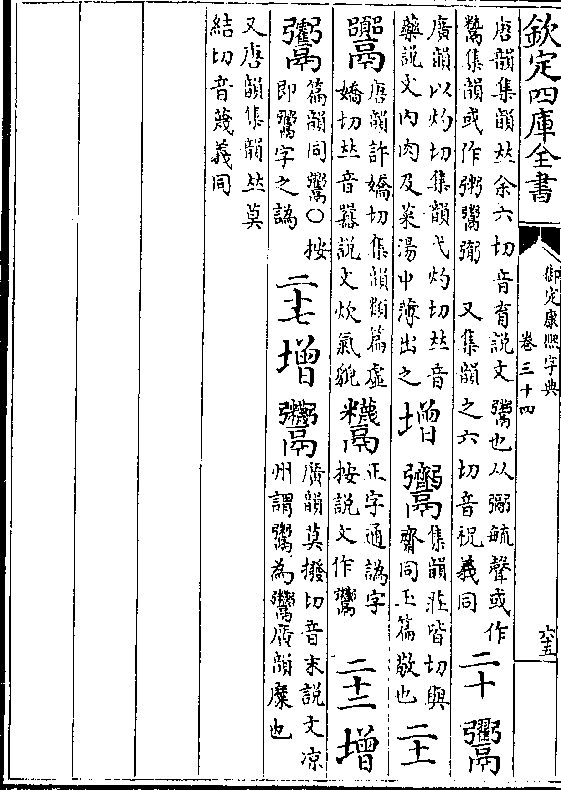 欽定四庫全書
御定康熙字典
卷三十四
六五
唐韻集韻𠀤余六切音育說文鬻也从䰜毓聲或作
集韻或作粥鬻 又集韻之六切音祝義同
二十
廣韻以灼切集韻弋灼切𠀤音
藥說文內肉及菜湯中薄出之
增
集韻莊皆切與
齋同玉篇敬也
二十一
唐韻許嬌切集韻類篇虛
嬌切𠀤音囂說文炊氣貌
正字通譌字
按說文作
二十二
增
篇韻同 ○按
即 字之譌
二十七
增
廣韻莫撥切音末說文凉
州謂鬻為 廣韻糜也
又唐韻集韻𠀤莫
結切音蔑義同